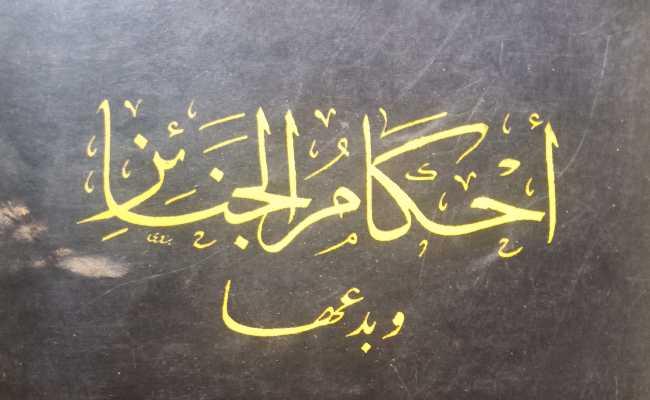 أحكام الجنائز
وبدعها